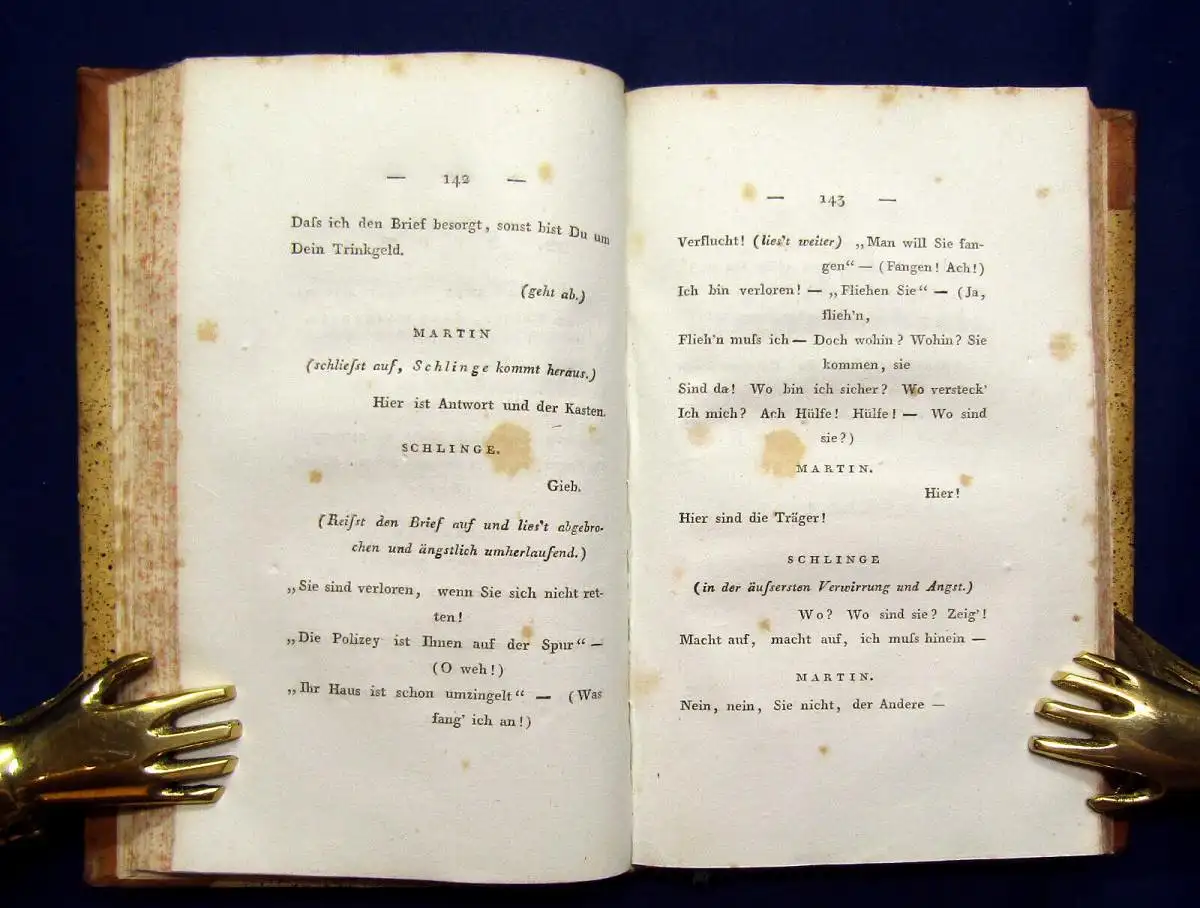 — 142 —
Daſs ich den Brief besorgt, sonst bist Du um
Dein Trinkgeld.
(geht ab.)
MARTIN
(schlieſst auf, Schlinge kommt heraus.)
Hier ist Antwort und der Kasten.
SCHLINGE.
Gieb.
(Reiſst den Brief auf und lies't abgebro-
chen und ängstlich umherlaufend.)
„Sie sind verloren, wenn Sie sich nicht ret-
ten!
„Die Polizey ist Ihnen auf der Spur“ —
(O weh!)
„Ihr Haus ist schon umzingelt“ — (Was
fang' ich an!)
— 143 —
Verflucht! (lies't weiter) „Man will Sie fan-
gen“ — (Fangen! Ach!)
Ich bin verloren! — „Fliehen Sie“ — (Ja,
flieh'n,
Flieh'n muſs ich — Doch wohin? Wohin? Sie
kommen, sie
Sind da! Wo bin ich sicher? Wo versteck'
Ich mich? Ach Hülfe! Hülfe! — Wo sind
sie?)
MARTIN.
Hier!
Hier sind die Träger!
SCHLINGE
(in der äuſsersten Verwirrung und Angst.)
Wo? Wo sind sie? Zeig'!
Macht auf, macht auf, ich muſs hinein —
MARTIN.
Nein, nein, Sie nicht, der Andere —